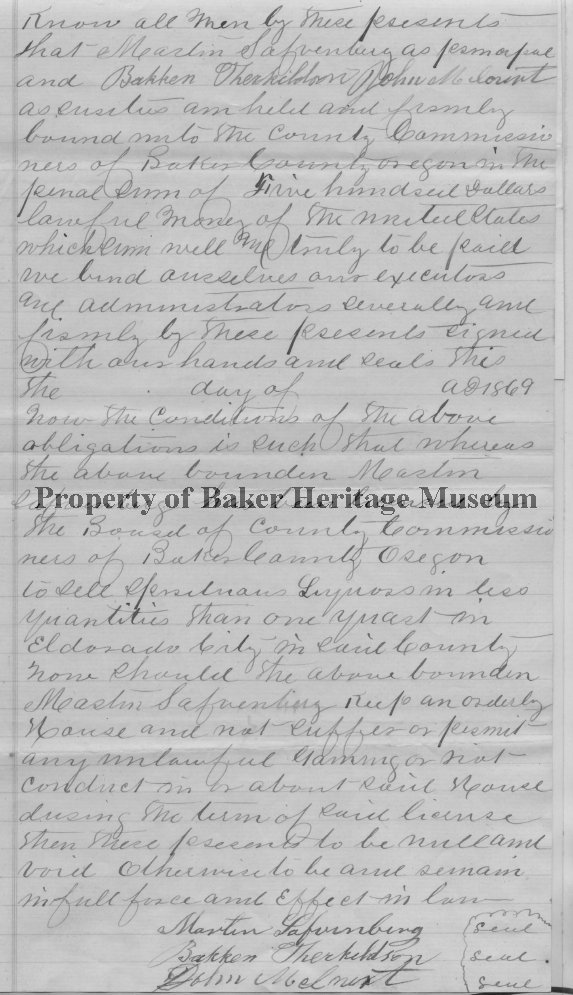 Know all Men by these presents
that Martin Safvenberg as principal
and Bakken Therkildson John McInert
as sureties am held and firmly
bound unto the County Commissio
ners of Baker County oregon in the
penal Sum of Five hundred Dollars
lawful Money of the united States
which Sum well and truly to be paid
we bind ourselves our executors
and administrators severally and
firmly by these presents signed
with our hands and seals this
the day of AD 1869
Now the Conditions of the above
obligations is such that whereas
the above bounden Martin
Property of Baker Heritage Museum
the Board of County Commissio
ners of Baker County Oregon
to sell Spirituous Liquors in less
quantities than one quart in
Eldorado City in said County
None should the above bounden
Martin Safvenberg Keep an orderly
House and not suffer or permit
any unlawful Gaming or riot
conduct in or about said House
during the term of said license
then these presents to be null and
void Otherwise to be and remain
in full force and Effect in law
Martin Safvenberg seal
Bakken Therkildson seal
John McInert seal